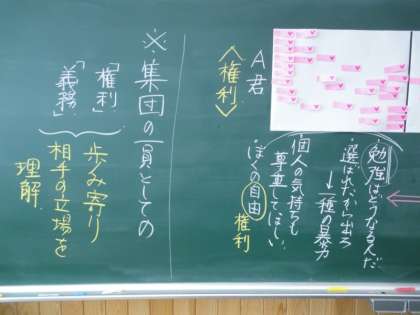 A君
〈権利〉
勉強はどうなるんだ
・選ばれたから出ろ
↓一種の暴力
・個人の気持ちも
尊重してほしい
・ぼくの自由
権利
※集団の一員としての
「権利」
「義務」
歩み寄り
相手の立場を
理解